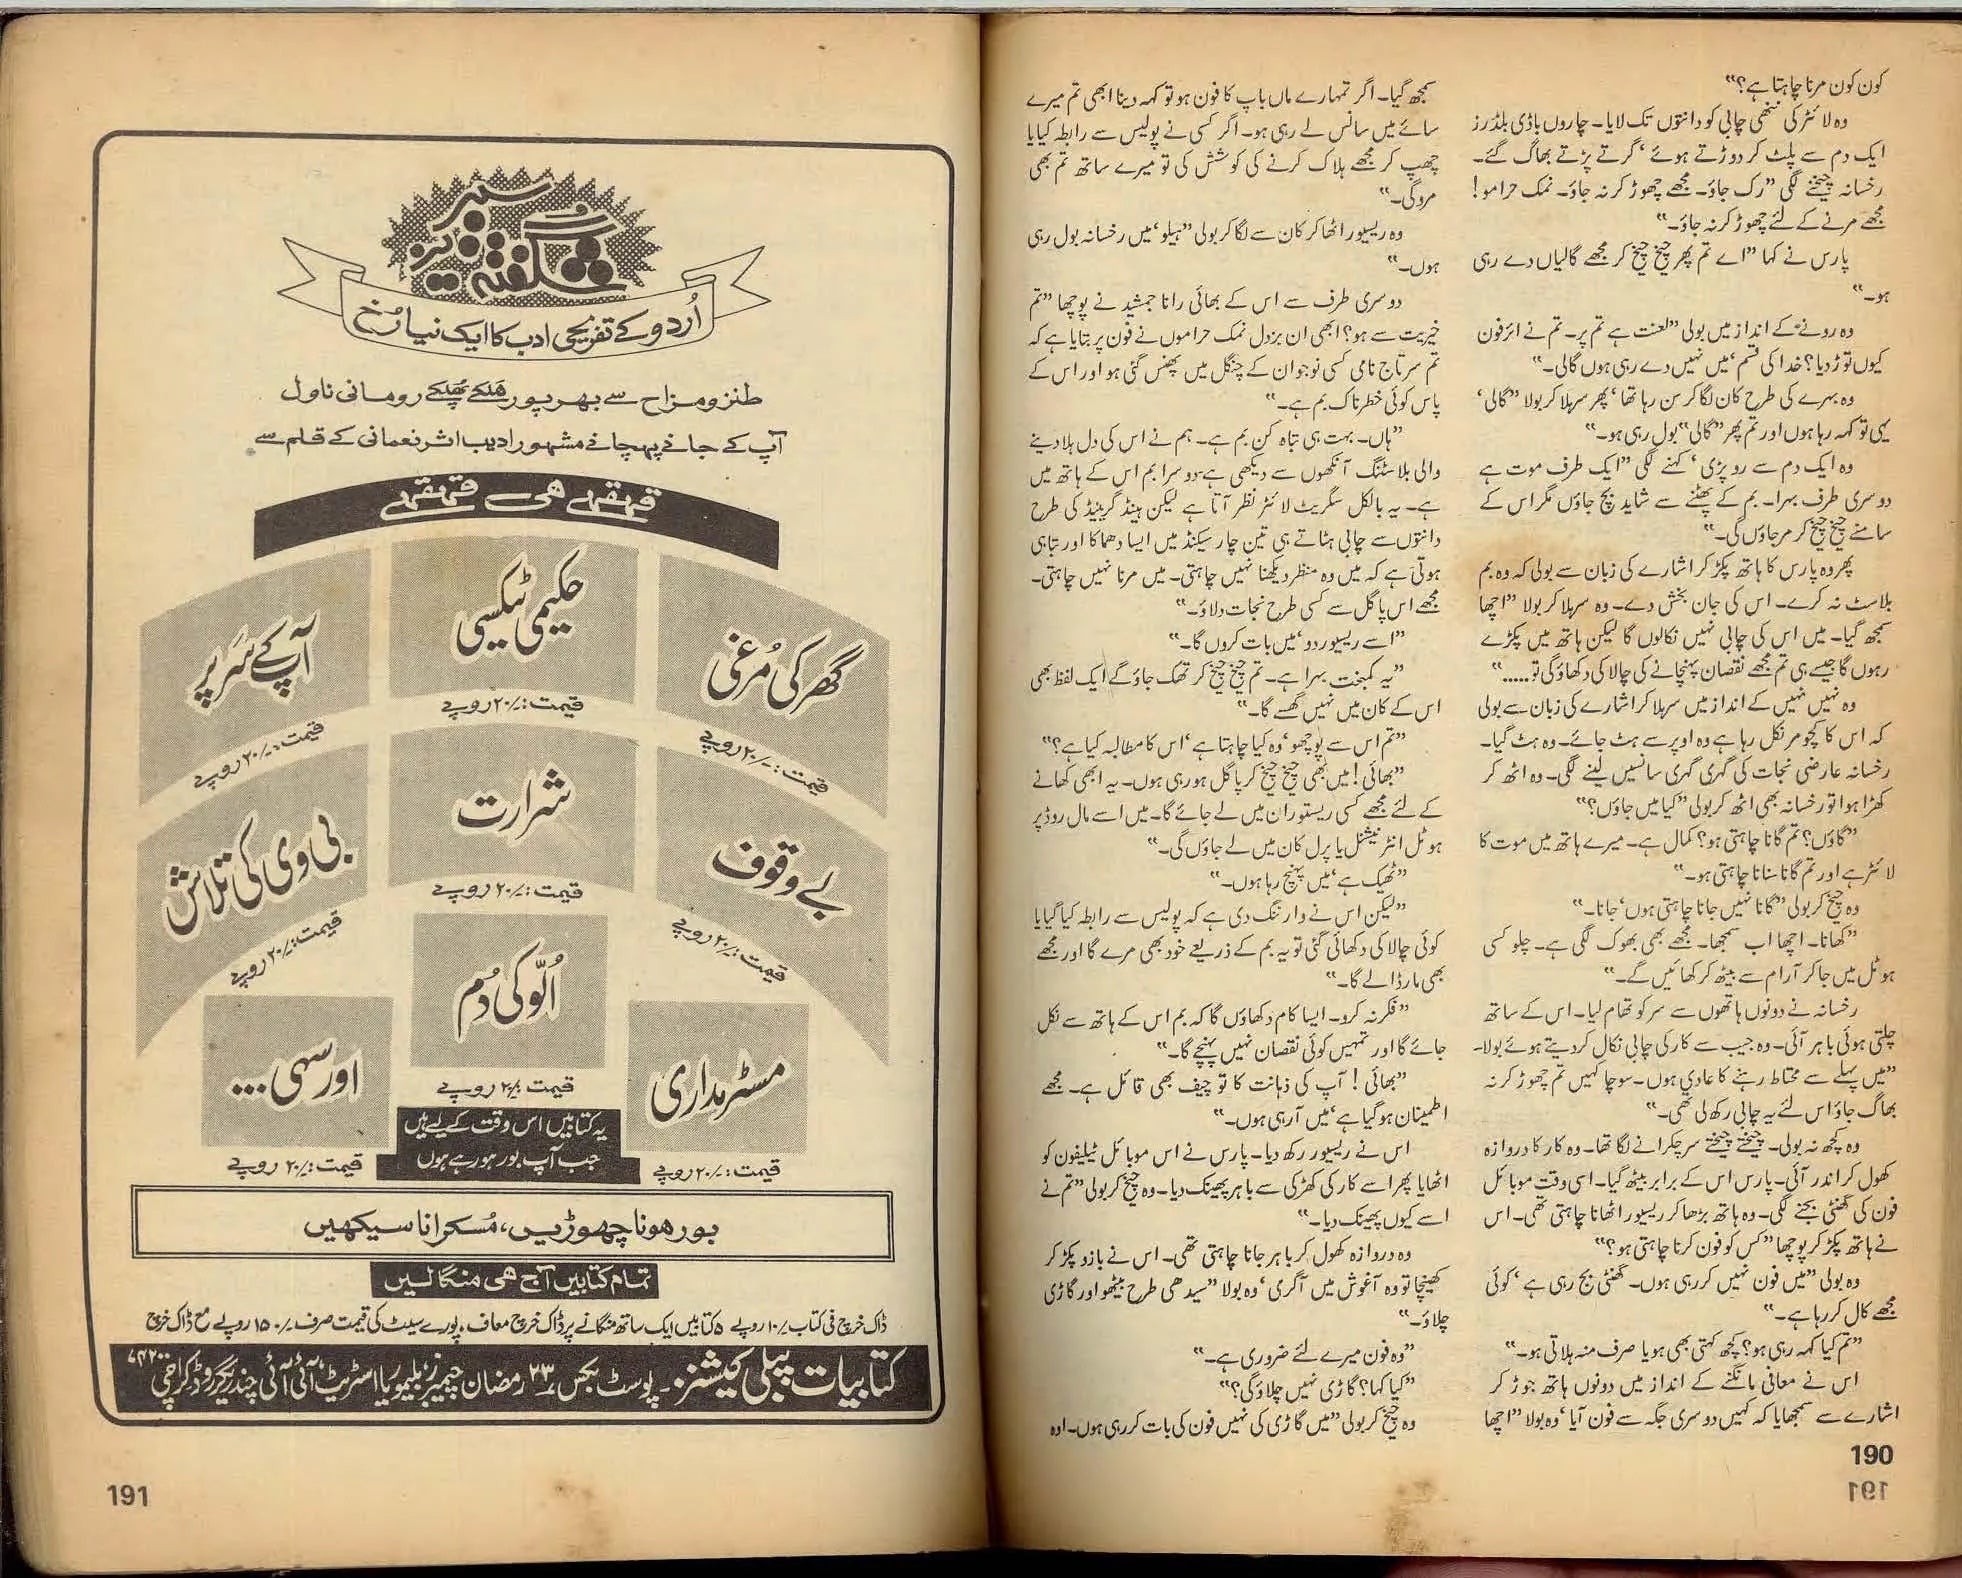 کون کون مرنا چاہتا ہے؟"
وہ لائٹر کی ننھی چابی کو دانتوں تک لایا۔ چاروں باڈی بلڈرز
ایک دم سے پلٹ کر دوڑتے ہوئے ‘ گرتے پڑتے بھاگ گئے۔
رخسانہ چیخنے لگی "رک جاؤ۔ مجھے چھوڑ کر نہ جاؤ۔ نمک حرامو!
مجھے مرنے کے لئے چھوڑ کر نہ جاؤ۔"
پارس نے کہا "اے تم پھر چیخ چیخ کر مجھے گالیاں دے رہی
ہو۔"
وہ رونے کے انداز میں بولی "لعنت ہے تم پر۔ تم نے ائرفون
کیوں توڑ دیا؟ خدا کی قسم ‘ میں نہیں دے رہی ہوں گالی۔"
وہ بہرے کی طرح کان لگا کر سن رہا تھا ‘ پھر سر ہلا کر بولا "گالی ‘
یہی تو کہہ رہا ہوں اور تم پھر "گالی" بول رہی ہو۔"
وہ ایک دم سے رو پڑی ‘ کہنے لگی "ایک طرف موت ہے
دوسری طرف بہرا۔ بم کے پھٹنے سے شاید بچ جاؤں مگر اس کے
سامنے چیخ چیخ کر مر جاؤں گی۔"
پھر وہ پارس کا ہاتھ پکڑ کر اشارے کی زبان سے بولی کہ وہ بم
بلاسٹ نہ کرے۔ اس کی جان بخش دے۔ وہ سر ہلا کر بولا "اچھا
سمجھ گیا۔ میں اس کی چابی نہیں نکالوں گا لیکن ہاتھ میں پکڑے
رہوں گا جیسے ہی تم مجھے نقصان پہنچانے کی چالاکی دکھاؤ گی تو....."
وہ نہیں نہیں کے انداز میں سر ہلا کر اشارے کی زبان سے بولی
کہ اس کا کچومر نکل رہا ہے وہ اوپر سے ہٹ جائے۔ وہ ہٹ گیا۔
رخسانہ عارضی نجات کی گہری گہری سانسیں لینے لگی۔ وہ اٹھ کر
کھڑا ہوا تو رخسانہ بھی اٹھ کر بولی "کیا میں جاؤں؟"
"گاؤں؟ تم گانا چاہتی ہو؟ کمال ہے۔ میرے ہاتھ میں موت کا
لائٹر ہے اور تم گانا سنانا چاہتی ہو۔"
وہ چیخ کر بولی "گانا نہیں جانا چاہتی ہوں ‘ جانا۔"
"کھانا۔ اچھا اب سمجھا۔ مجھے بھی بھوک لگی ہے۔ چلو کسی
ہوٹل میں جا کر آرام سے بیٹھ کر کھائیں گے۔"
رخسانہ نے دونوں ہاتھوں سے سر کو تھام لیا۔ اس کے ساتھ
چلتی ہوئی باہر آئی۔ وہ جیب سے کار کی چابی نکال کر دیتے ہوئے بولا۔
"میں پہلے سے محتاط رہنے کا عادی ہوں۔ سوچا کہیں تم چھوڑ کر نہ
بھاگ جاؤ اس لئے یہ چابی رکھ لی تھی۔"
وہ کچھ نہ بولی۔ چیختے چیختے سر چکرانے لگا تھا۔ وہ کار کا دروازہ
کھول کر اندر آئی۔ پارس اس کے برابر بیٹھ گیا۔ اسی وقت موبائل
فون کی گھنٹی بجنے لگی۔ وہ ہاتھ بڑھا کر ریسیور اٹھانا چاہتی تھی۔ اس
نے ہاتھ پکڑ کر پوچھا "کس کو فون کرنا چاہتی ہو؟"
وہ بولی "میں فون نہیں کر رہی ہوں۔ گھنٹی بج رہی ہے ‘ کوئی
مجھے کال کر رہا ہے۔"
"تم کیا کہہ رہی ہو؟ کچھ کہتی بھی ہو یا صرف منہ ہلاتی ہو۔"
اس نے معافی مانگنے کے انداز میں دونوں ہاتھ جوڑ کر
اشارے سے سمجھایا کہ کہیں دوسری جگہ سے فون آیا ‘ وہ بولا "اچھا
سمجھ گیا۔ اگر تمہارے ماں باپ کا فون ہو تو کہہ دینا ابھی تم میرے
سائے میں سانس لے رہی ہو۔ اگر کسی نے پولیس سے رابطہ کیا یا
چھپ کر مجھے ہلاک کرنے کی کوشش کی تو میرے ساتھ تم بھی
مرو گی۔"
وہ ریسیور اٹھا کر کان سے لگا کر بولی "ہیلو ‘ میں رخسانہ بول رہی
ہوں۔"
دوسری طرف سے اس کے بھائی رانا جمشید نے پوچھا "تم
خیریت سے ہو؟ ابھی ان بزدل نمک حراموں نے فون پر بتایا ہے کہ
تم سرتاج نامی کسی نوجوان کے چنگل میں پھنس گئی ہو اور اس کے
پاس کوئی خطرناک بم ہے۔"
"ہاں۔ بہت ہی تباہ کن بم ہے۔ ہم نے اس کی دل ہلا دینے
والی بلاسٹنگ آنکھوں سے دیکھی ہے۔ دوسرا بم اس کے ہاتھ میں
ہے۔ یہ بالکل سگریٹ لائٹر نظر آتا ہے لیکن ہینڈ گرینیڈ کی طرح
دانتوں سے چابی ہٹاتے ہی تین چار سیکنڈ میں ایسا دھماکا اور تباہی
ہوتی ہے کہ میں وہ منظر دیکھنا نہیں چاہتی۔ میں مرنا نہیں چاہتی۔
مجھے اس پاگل سے کسی طرح نجات دلاؤ۔"
"اسے ریسیور دو ‘ میں بات کروں گا۔"
"یہ کمبخت بہرا ہے۔ تم چیخ چیخ کر تھک جاؤ گے ایک لفظ بھی
اس کے کان میں نہیں گھسے گا۔"
"تم اس سے پوچھو ‘ وہ کیا چاہتا ہے ‘ اس کا مطالبہ کیا ہے؟"
"بھائی! میں بھی چیخ چیخ کر پاگل ہو رہی ہوں۔ یہ ابھی کھانے
کے لئے مجھے کسی ریستوران میں لے جائے گا۔ میں اسے مال روڈ پر
ہوٹل انٹرنیشنل یا پرل کان میں لے جاؤں گی۔"
"ٹھیک ہے ‘ میں پہنچ رہا ہوں۔"
"لیکن اس نے وارننگ دی ہے کہ پولیس سے رابطہ کیا گیا یا
کوئی چالاکی دکھائی گئی تو یہ بم کے ذریعے خود بھی مرے گا اور مجھے
بھی مار ڈالے گا۔"
"فکر نہ کرو۔ ایسا کام دکھاؤں گا کہ بم اس کے ہاتھ سے نکل
جائے گا اور تمہیں کوئی نقصان نہیں پہنچے گا۔"
"بھائی! آپ کی ذہانت کا تو چیف بھی قائل ہے۔ مجھے
اطمینان ہو گیا ہے ‘ میں آ رہی ہوں۔"
اس نے ریسیور رکھ دیا۔ پارس نے اس موبائل ٹیلیفون کو
اٹھایا پھر اسے کار کی کھڑکی سے باہر پھینک دیا۔ وہ چیخ کر بولی "تم نے
اسے کیوں پھینک دیا۔"
وہ دروازہ کھول کر باہر جانا چاہتی تھی۔ اس نے بازو پکڑ کر
کھینچا تو وہ آغوش میں آ گری ‘ وہ بولا "سیدھی طرح بیٹھو اور گاڑی
چلاؤ۔"
"وہ فون میرے لئے ضروری ہے۔"
"کیا کہا؟ گاڑی نہیں چلاؤ گی؟"
وہ چیخ کر بولی "میں گاڑی کی نہیں فون کی بات کر رہی ہوں۔ اوہ
190
191
شگفتہ سیریز
اُردو کے تفریحی ادب کا ایک نیا رُخ
طنز و مزاح سے بھرپور ہلکے پھلکے رومانی ناول
آپ کے جانے پہچانے مشہور ادیب اثر نعمانی کے قلم سے
قہقہے ھی قہقہے
گھر کی مُرغی
قیمت :۔/۲۰ روپے
حکیمی ٹیکسی
قیمت :۔/۲۰ روپے
آپ کے سَر پر
قیمت :۔/۲۰ روپے
بے وقوف
قیمت :۔/۲۰ روپے
شرارت
قیمت :۔/۲۰ روپے
بی وی کی تلاش
قیمت :۔/۲۰ روپے
مسٹر مداری
قیمت :۔/۲۰ روپے
اُلّو کی دُم
قیمت :۔/۲۰ روپے
اور سہی ...
قیمت :۔/۲۰ روپے
یہ کتابیں اس وقت کے لیے ہیں
جب آپ بور ہو رہے ہوں
بور ھونا چھوڑیں، مُسکرانا سیکھیں
تمام کتابیں آج ھی منگالیں
ڈاک خرچ فی کتاب ۔/۱۰ روپے ۵ کتابیں ایک ساتھ منگانے پر ڈاک خرچ معاف، پورے سیٹ کی قیمت صرف ۔/۱۵۰ روپے مع ڈاک خرچ
کتابیات پبلی کیشنز۔ پوسٹ بکس ۲۳ رمضان چیمبرز بلیموریا اسٹریٹ آئی آئی چندریگر روڈ کراچی ۷۴۲۰۰
191